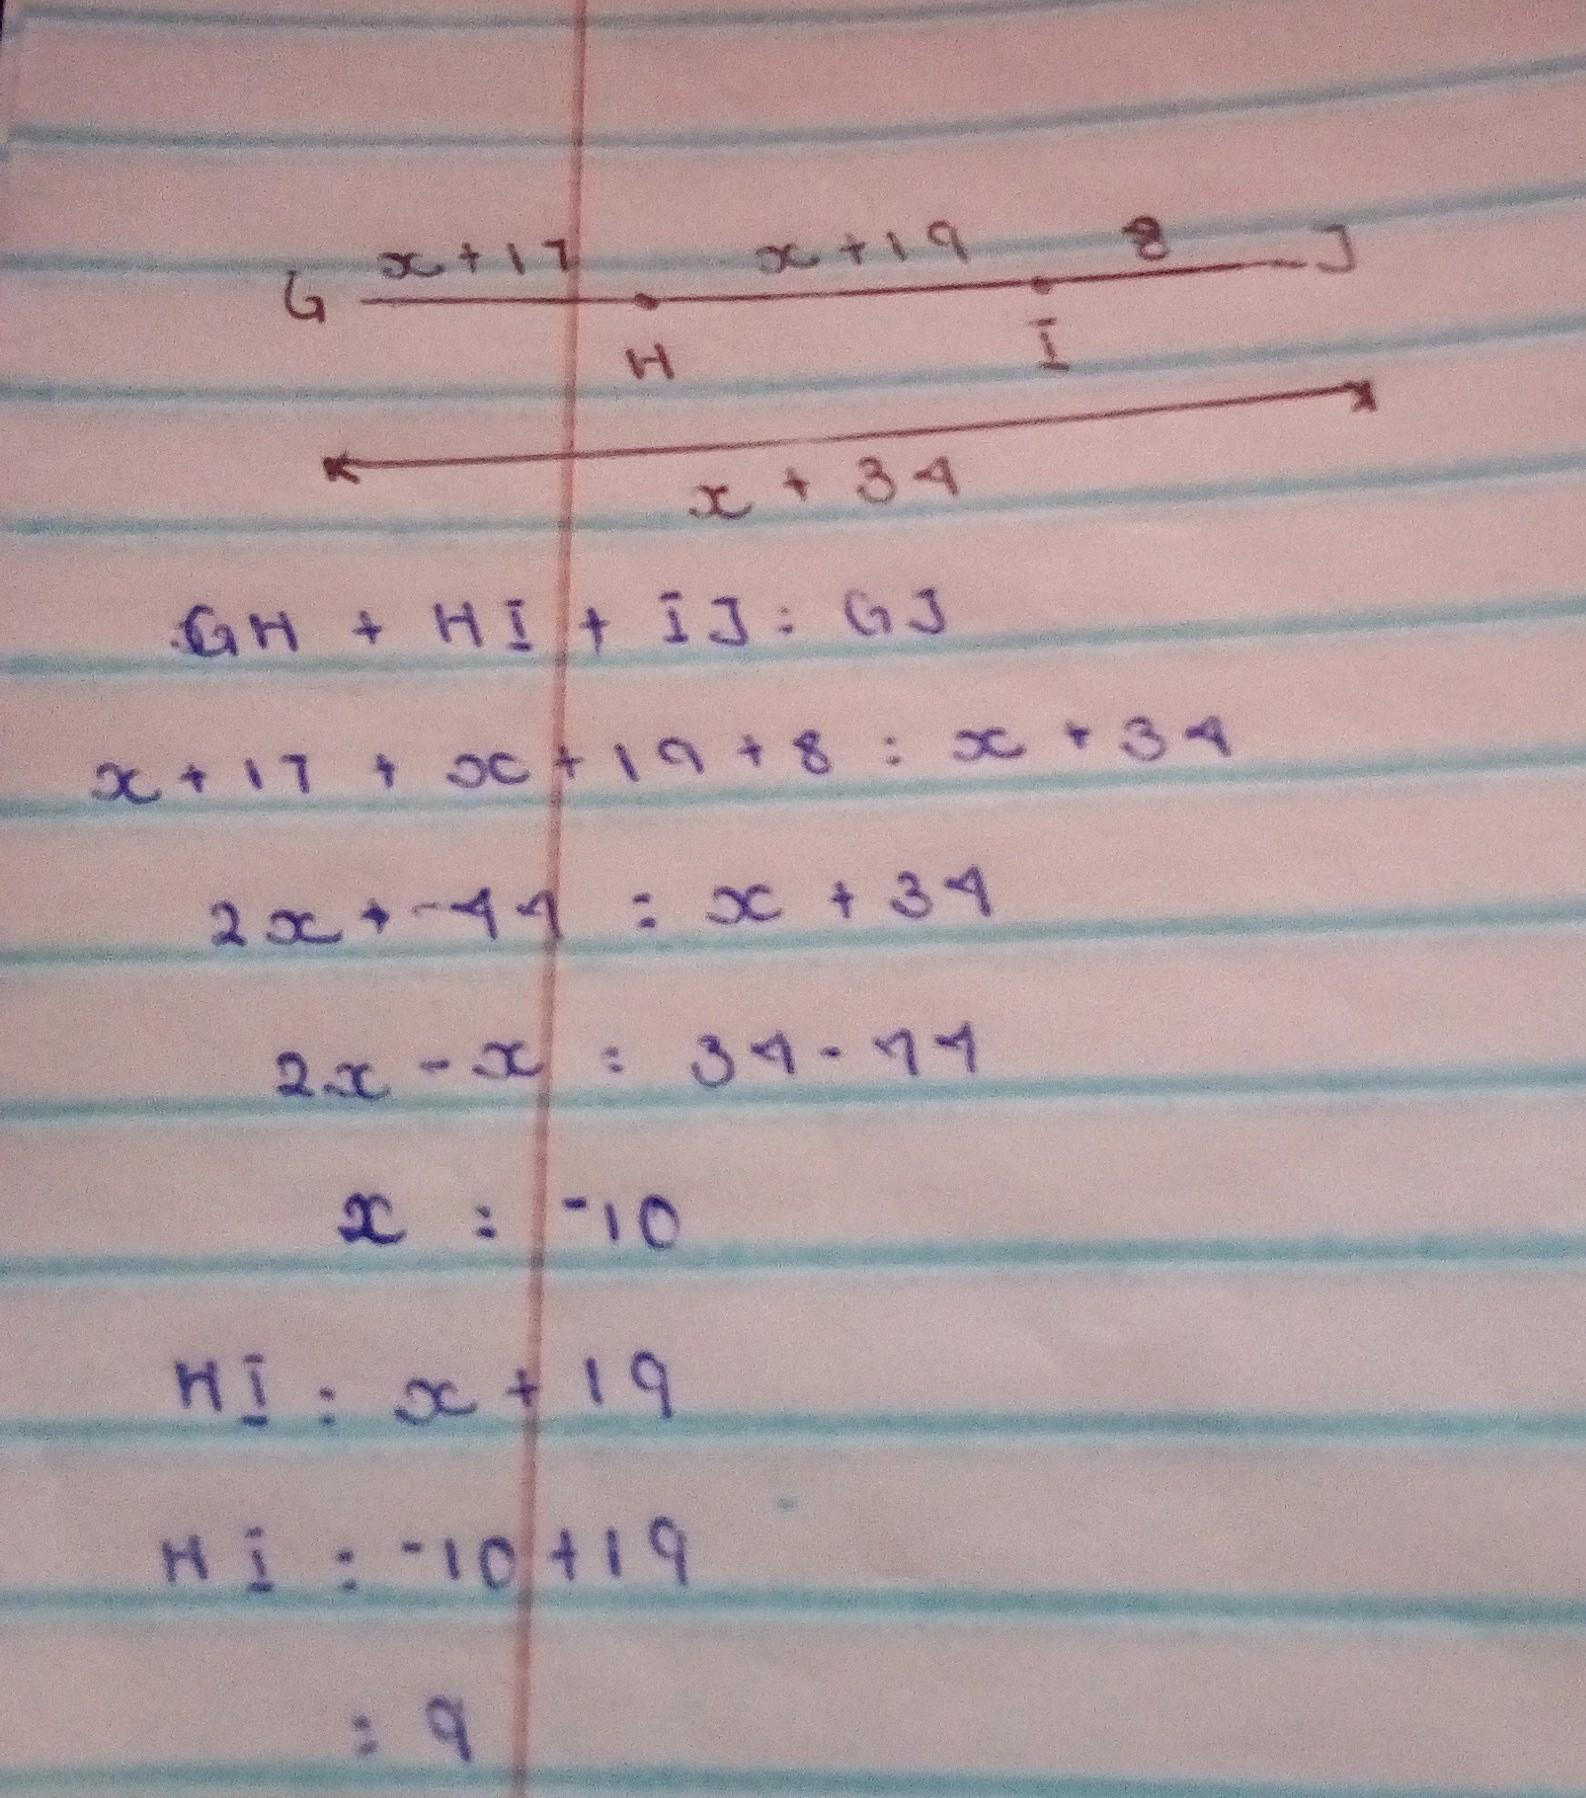 x+17 x+19 8
G J
H I
x + 34
GH + HI + IJ = GJ
x+17 + x+19+8 = x+34
2x+44 = x+34
2x-x = 34-44
x = -10
HI = x+19
HI = -10+19
= 9